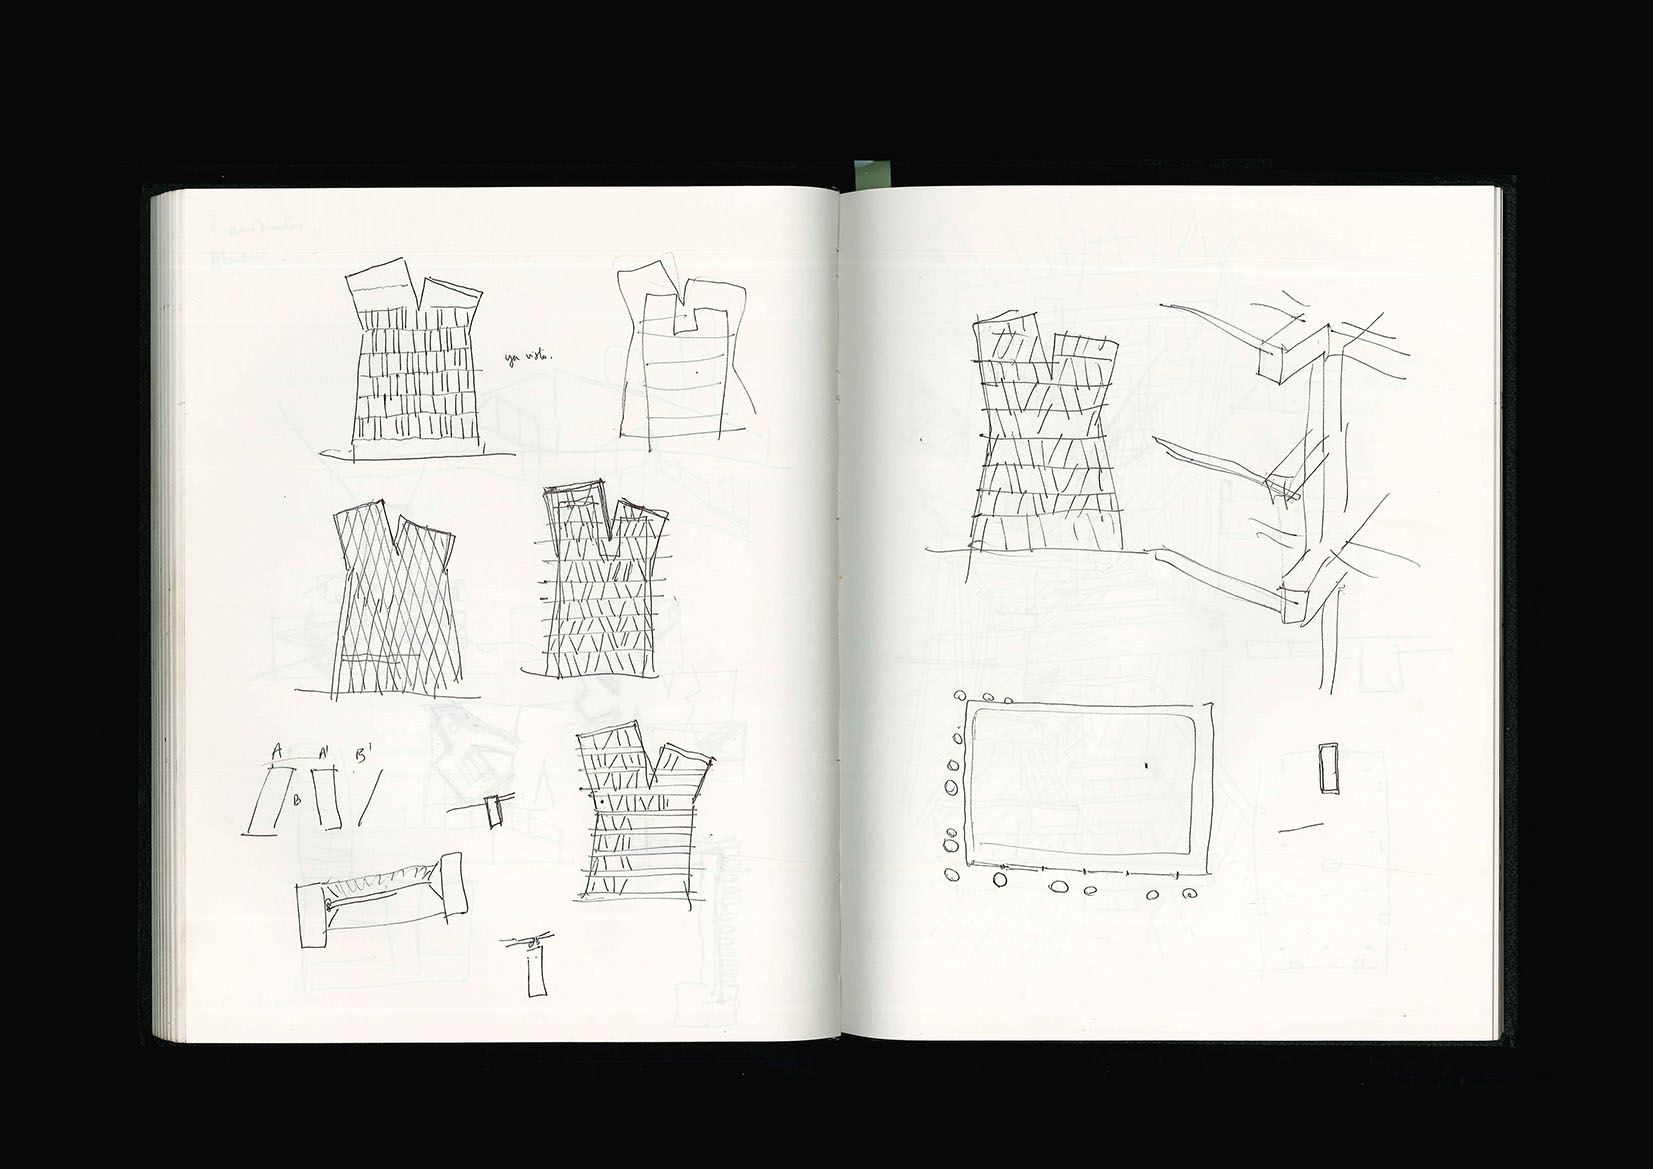 ya visto.
A A' B'
B